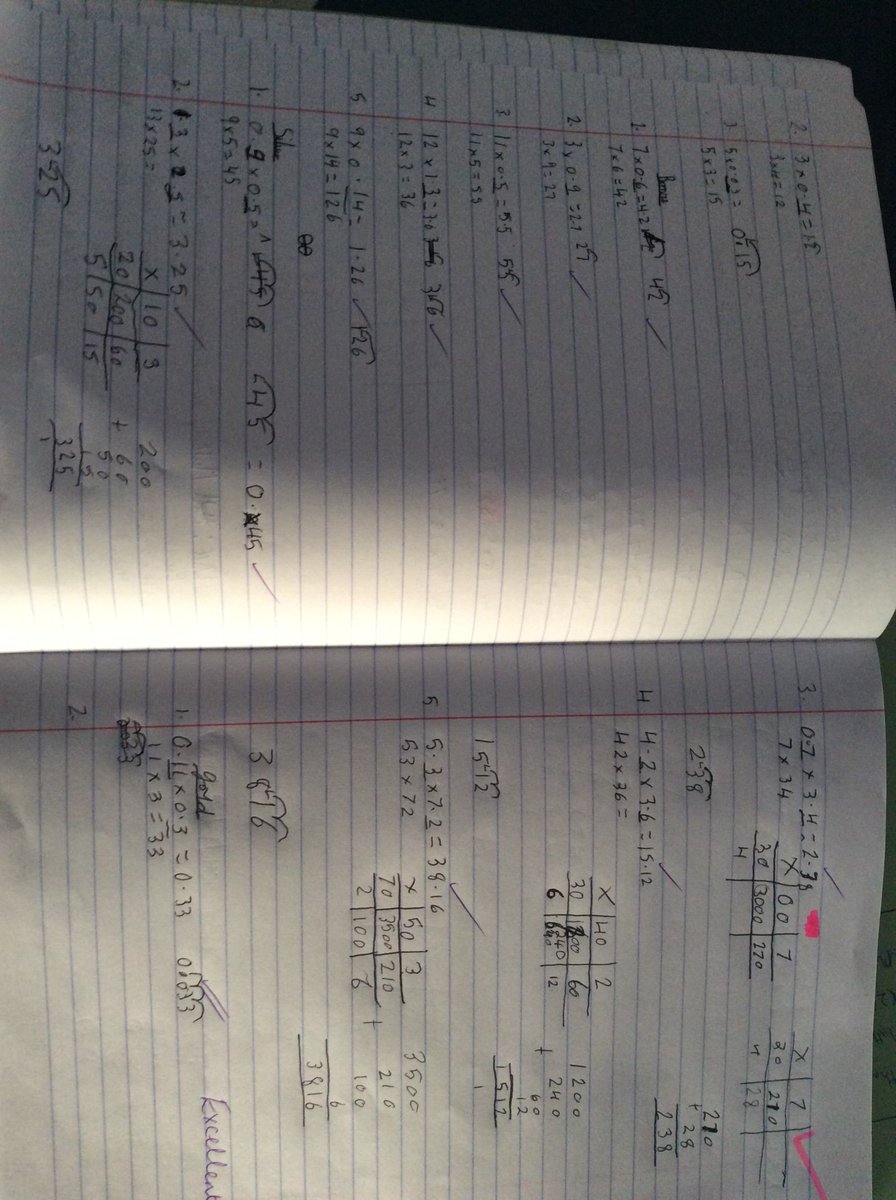 2. 3 x 0.4 = 1.2
3 x 4 = 12
3. 5 x 0.03 = 0.15
5 x 3 = 15
Bronze
1. 7 x 0.6 = 42 4.2
7 x 6 = 42
2. 3 x 0.9 = 2.7 27
3 x 9 = 27
3 11 x 0.5 = 55 55
11 x 5 = 55
4 12 x 1.3 = 3.6 3.6
12 x 3 = 36
5 9 x 0.14 = 1.26 1.26
9 x 14 = 126
Silver
1. 0.9 x 0.5 = 45 45 = 0.45
9 x 5 = 45
2. 1.3 x 2.5 = 3.25
13 x 25 =
x 10 3
20 200 60
5 50 15
200
+ 60
50
15
325
1
3.25
3. 0.7 x 3.4 = 2.38
7 x 34
X 00 7
30 3000 270
4
X 7
30 210
4 28
210
+ 28
238
2.38
4 4.2 x 3.6 = 15.12
42 x 36 =
x 40 2
30 1200 60
6 240 12
1200
+ 240
60
12
1512
1
15.12
5 5.3 x 7.2 = 38.16
53 x 72
x 50 3
70 3500 210
2 100 6
3500
210
+ 100
6
3816
38.16
gold
1. 0.11 x 0.3 = 0.33 0.033
11 x 3 = 33
Excellent
2.